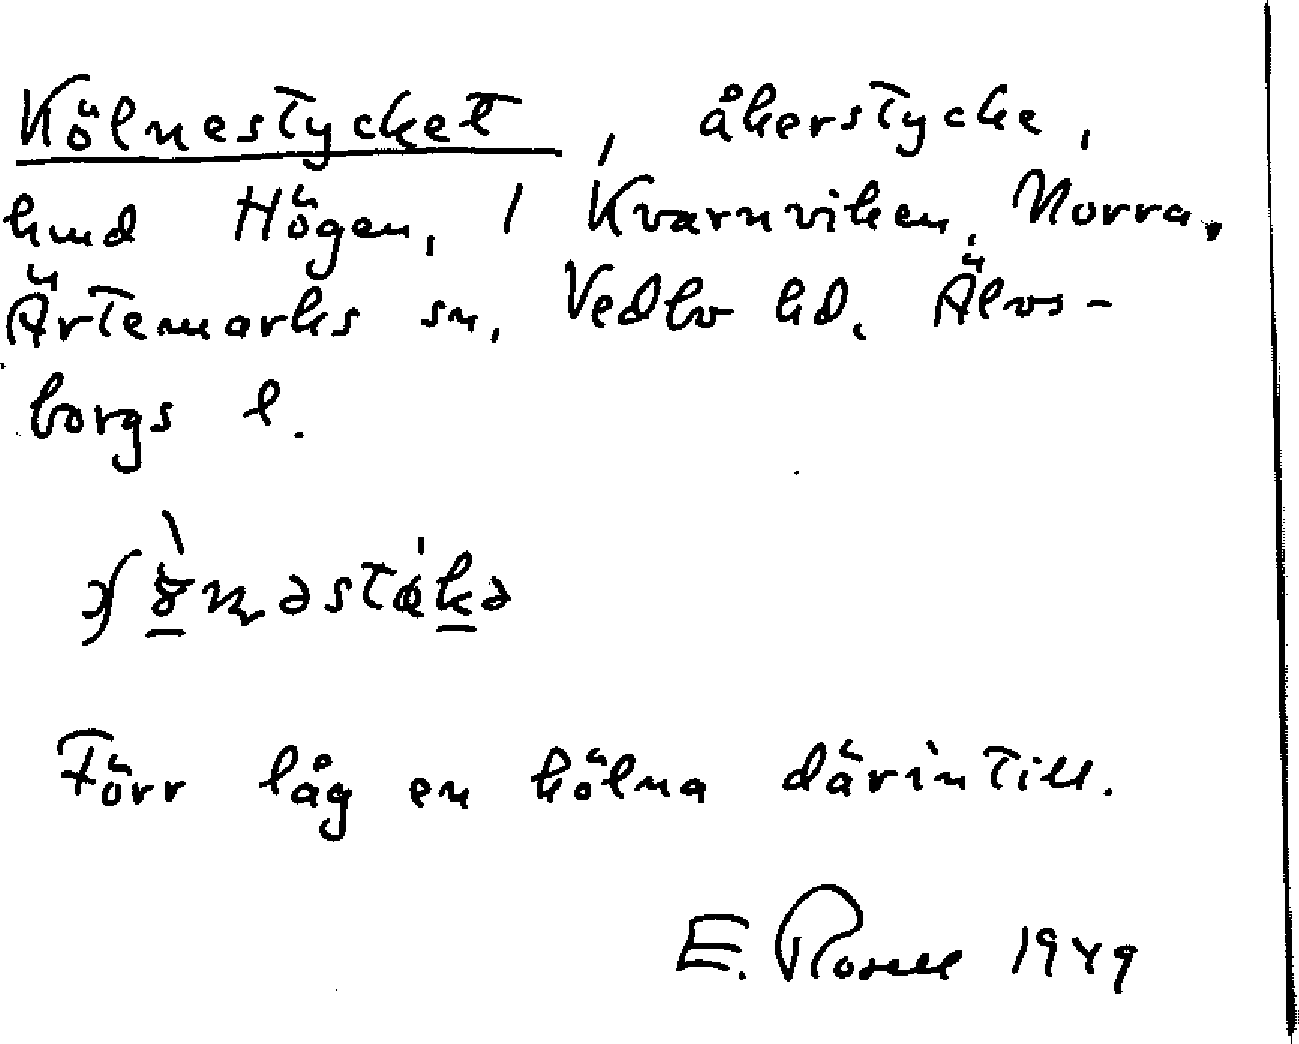 Kölnestycket, åkerstycke,
hmd Högen, 1 Kvarnviken, Norra,
Ärtemarks sn, Vedbo hd, Älvs-
borgs l.
Förr låg en kölna därintill.
E. Rosell 1949